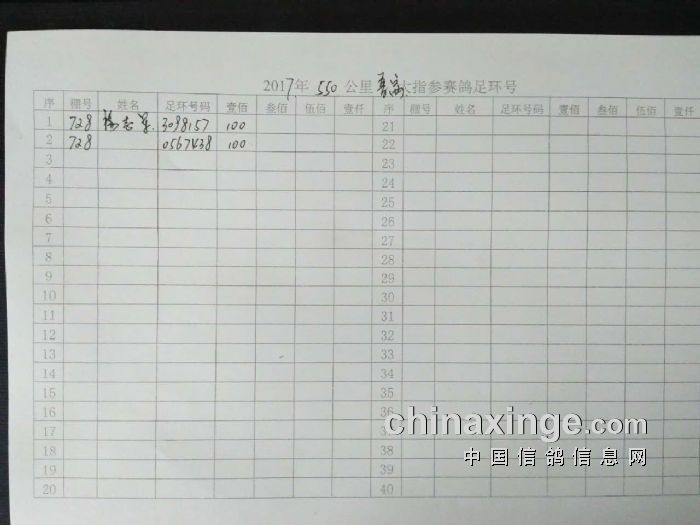 2017年 550 公里 指参赛鸽足环号
序 棚号 姓名 足环号码 壹佰 叁佰 伍佰 壹仟 序 棚号 姓名 足环号码 壹佰 叁佰 伍佰 壹仟
1 728 3098157 100 21
2 728 0567438 100 22
3 23
4 24
5 25
6 26
7 27
8 28
9 29
10 30
11 31
12 32
13 33
14 34
15 35
16 36
17
18 38
19 39
20 40
chinaxinge.com
中国信鸽信息网